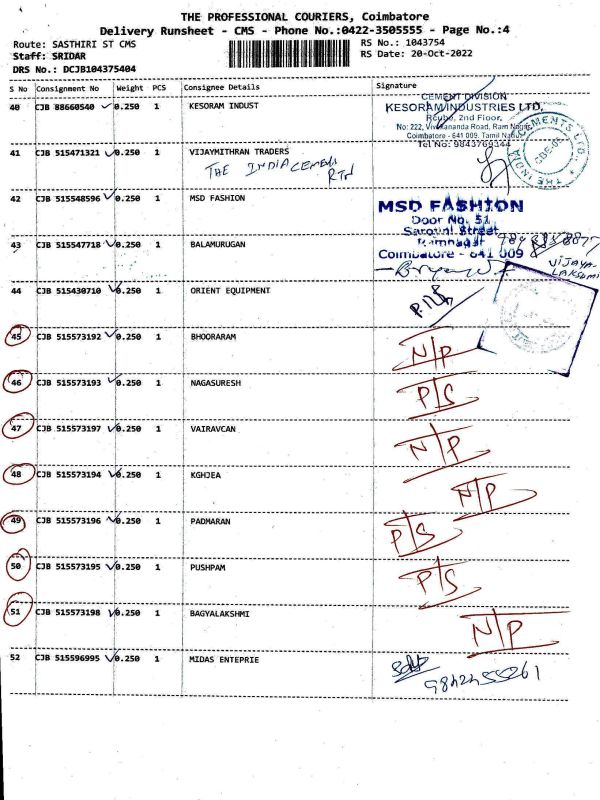 THE PROFESSIONAL COURIERS, Coimbatore
Delivery Runsheet - CMS - Phone No.:0422-3505555 - Page No.:4
Route: SASTHIRI ST CMS RS No.: 1043754
Staff: SRIDAR RS Date: 20-Oct-2022
DRS No.: DCJB104375404
S No Consignment No Weight PCS Consignee Details Signature
40 CJB 88660540 0.250 1 KESORAM INDUST
CEMENT DIVISION
KESORAM INDUSTRIES LTD,
2nd Floor,
No: 222, Vivekananda Road, Ram Nagar,
Coimbatore - 641 009. Tamil Nadu
Tel No: 9843769344
41 CJB 515471321 0.250 1 VIJAYMITHRAN TRADERS
THE INDIA CEMENTS
RTN
42 CJB 515548596 0.250 1 MSD FASHION
MSD FASHION
Door No. 51
Sarojini Street
Ramnagar
Coimbatore - 641 009
43 CJB 515547718 0.250 1 BALAMURUGAN
VIJAYA-
LAKSHMI
44 CJB 515430710 0.250 1 ORIENT EQUIPMENT
45 CJB 515573192 0.250 1 BHOORARAM N/P
46 CJB 515573193 0.250 1 NAGASURESH P/S
47 CJB 515573197 0.250 1 VAIRAVCAN N/P
48 CJB 515573194 0.250 1 KGHJEA N/P
49 CJB 515573196 0.250 1 PADMARAN P/S
50 CJB 515573195 0.250 1 PUSHPAM P/S
51 CJB 515573198 0.250 1 BAGYALAKSHMI N/P
52 CJB 515596995 0.250 1 MIDAS ENTEPRIE